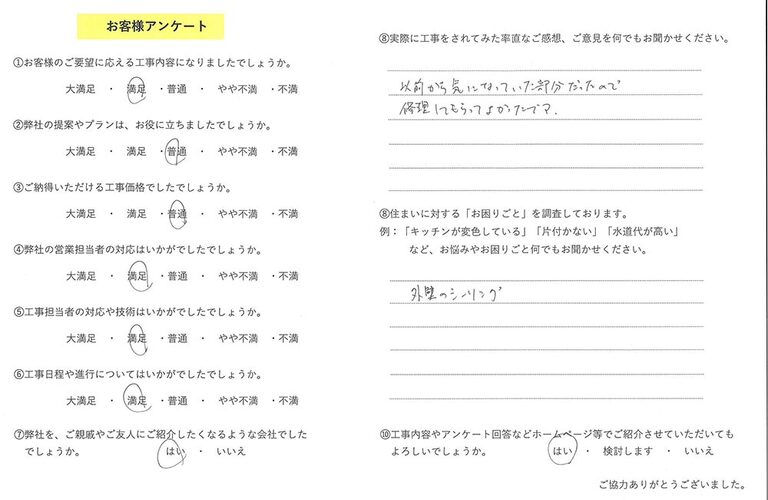 お客様アンケート
①お客様のご要望に応える工事内容になりましたでしょうか。
大満足 ・ 満足 ・普通 ・ やや不満 ・不満
②弊社の提案やプランは、お役に立ちましたでしょうか。
大満足 ・ 満足 ・普通 ・ やや不満 ・不満
③ご納得いただける工事価格でしたでしょうか。
大満足 ・ 満足 ・普通 ・ やや不満 ・不満
④弊社の営業担当者の対応はいかがでしたでしょうか。
大満足 ・ 満足 ・普通 ・ やや不満 ・不満
⑤工事担当者の対応や技術はいかがでしたでしょうか。
大満足 ・ 満足 ・普通 ・ やや不満 ・不満
⑥工事日程や進行についてはいかがでしたでしょうか。
大満足 ・ 満足 ・普通 ・ やや不満 ・不満
⑦弊社を、ご親戚やご友人にご紹介したくなるような会社でした
でしょうか。 はい ・ いいえ
⑧実際に工事をされてみた率直なご感想、ご意見を何でもお聞かせください。
以前から気になっていた部分だったので
修理してもらってよかったです.
⑧住まいに対する「お困りごと」を調査しております。
例：「キッチンが変色している」「片付かない」「水道代が高い」
など、お悩みやお困りごと何でもお聞かせください。
外壁のシーリング
⑩工事内容やアンケート回答などホームページ等でご紹介させていただいても
よろしいでしょうか。 はい ・ 検討します ・ いいえ
ご協力ありがとうございました。